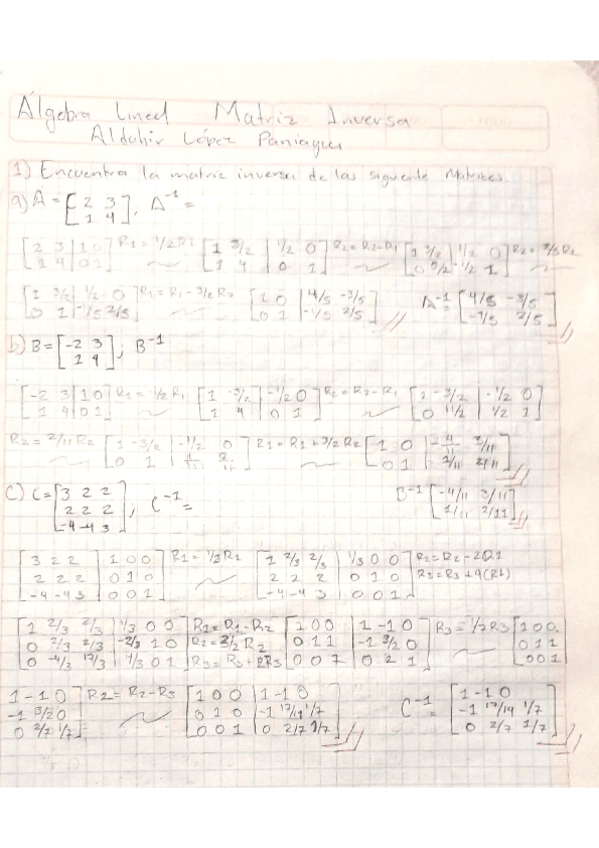 Álgebra Lineal Matriz Inversa
Aldahir López Paniagua
1) Encuentra la matriz inversa de las siguiente Matrices.
a) A = [2 3 / 1 4], A⁻¹ =
[2 3 | 1 0 / 1 4 | 0 1] R1 = 1/2 R1 [1 3/2 | 1/2 0 / 1 4 | 0 1] R2 = R2 - R1 [1 3/2 | 1/2 0 / 0 5/2 | -1/2 1] R2 = 2/5 R2
[1 3/2 | 1/2 0 / 0 1 | -1/5 2/5] R1 = R1 - 3/2 R2 [1 0 | 4/5 -3/5 / 0 1 | -1/5 2/5] A⁻¹ = [4/5 -3/5 / -1/5 2/5]
b) B = [-2 3 / 1 4], B⁻¹
[-2 3 | 1 0 / 1 4 | 0 1] R1 = -1/2 R1 [1 -3/2 | -1/2 0 / 1 4 | 0 1] R2 = R2 - R1 [1 -3/2 | -1/2 0 / 0 11/2 | 1/2 1]
R2 = 2/11 R2 [1 -3/2 | -1/2 0 / 0 1 | 1/11 2/11] R1 = R1 + 3/2 R2 [1 0 | -4/11 3/11 / 0 1 | 1/11 2/11]
B⁻¹ [-4/11 3/11 / 1/11 2/11]
C) C = [3 2 2 / 2 2 2 / -4 -4 3], C⁻¹ =
[3 2 2 | 1 0 0 / 2 2 2 | 0 1 0 / -4 -4 3 | 0 0 1] R1 = 1/3 R1 [1 2/3 2/3 | 1/3 0 0 / 2 2 2 | 0 1 0 / -4 -4 3 | 0 0 1] R2 = R2 - 2R1 R3 = R3 + 4(R1)
[1 2/3 2/3 | 1/3 0 0 / 0 2/3 2/3 | -2/3 1 0 / 0 -4/3 17/3 | 4/3 0 1] R1 = R1 - R2 R2 = 3/2 R2 R3 = R3 + 2R3 [1 0 0 | 1 -1 0 / 0 1 1 | -1 3/2 0 / 0 0 7 | 0 2 1] R3 = 1/7 R3 [1 0 0 / 0 1 1 / 0 0 1
1 -1 0 / -1 3/2 0 / 0 2/7 1/7] R2 = R2 - R3 [1 0 0 | 1 -1 0 / 0 1 0 | -1 17/14 1/7 / 0 0 1 | 0 2/7 1/7] C⁻¹ = [1 -1 0 / -1 17/14 1/7 / 0 2/7 1/7]